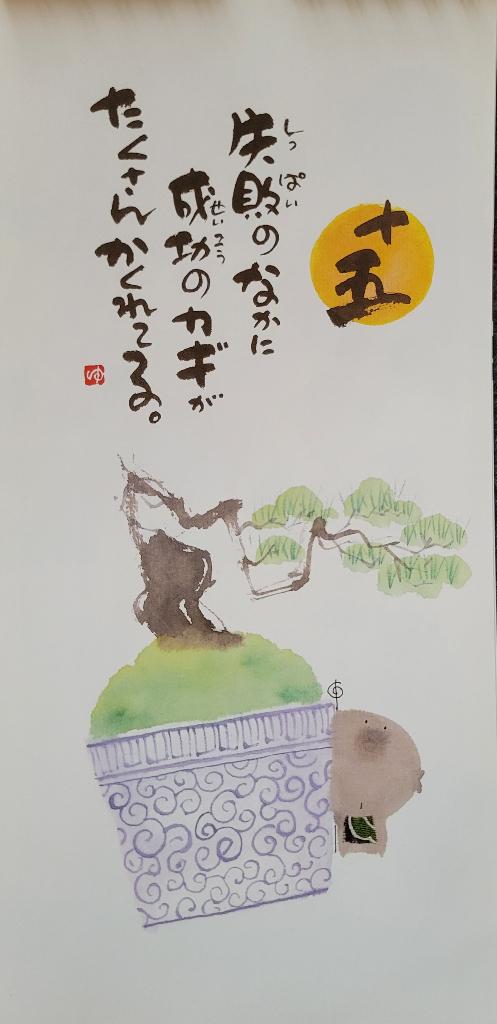 十五
失敗のなかに
しっぱい
成功のカギが
せいこう
たくさんかくれてる。
ゆ